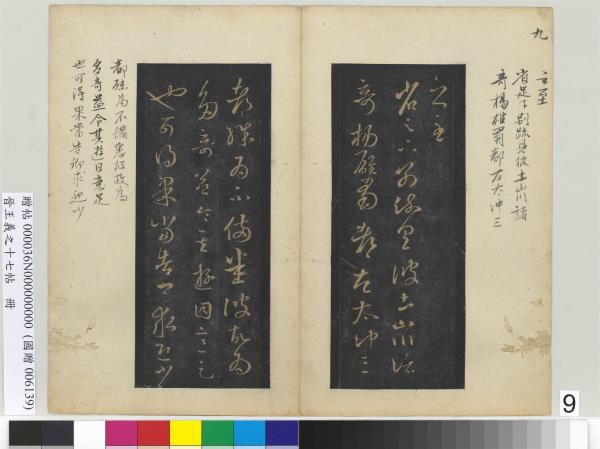 九
言至
省足下別疏具彼土山川諸
奇楊雄蜀都左太沖三
言至
省足下別疏具彼土山川諸
奇揚雄蜀都左太沖三
都殊為不備悉彼故為
多奇益令其遊目意足
也可得果當告卿求迎少
都殊為不備悉彼故為
多奇益令其遊目意足
也可得果當告卿求迎少
贈帖 000036N000000000 (國贈 006139)
晉王羲之十七帖 冊
9